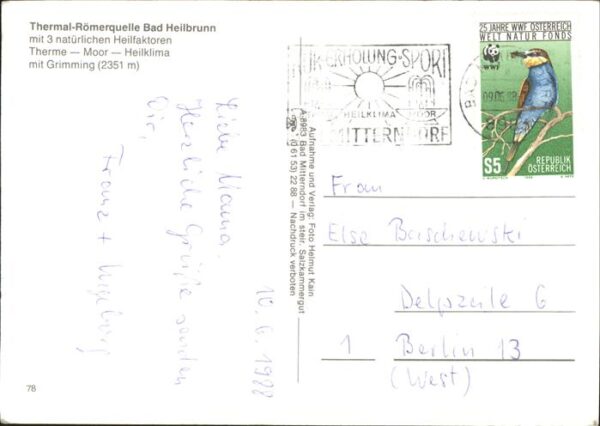 Thermal-Römerquelle Bad Heilbrunn
mit 3 natürlichen Heilfaktoren
Therme — Moor — Heilklima
mit Grimming (2351 m)
10. 6. 1988
Liebe Mama,
Herzliche Grüße senden
Dir,
Franz + Ingeburg
78
Aufnahme und Verlag: Foto Helmut Kain
A-8983 Bad Mitterndorf im steir. Salzkammergut
(0 61 53) 22 88 — Nachdruck verboten
ERHOLUNG · SPORT
HEILKLIMA MOOR
MITTERNDORF
25 JAHRE WWF ÖSTERREICH
WELT NATUR FONDS
WWF
S5
REPUBLIK
ÖSTERREICH
Frau
Else
Delpzeile 6
1 Berlin 13
(West)